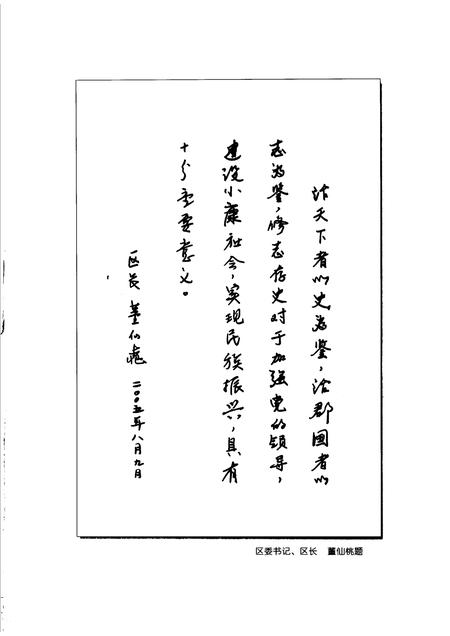 治天下者以史为鉴，治郡国者以
志为鉴，修志存史对于加强党的领导，
建设小康社会，实现民族振兴，具有
十分重要意义。
区长 董仙桃 二〇〇五年八月九日
区委书记、区长 董仙桃题